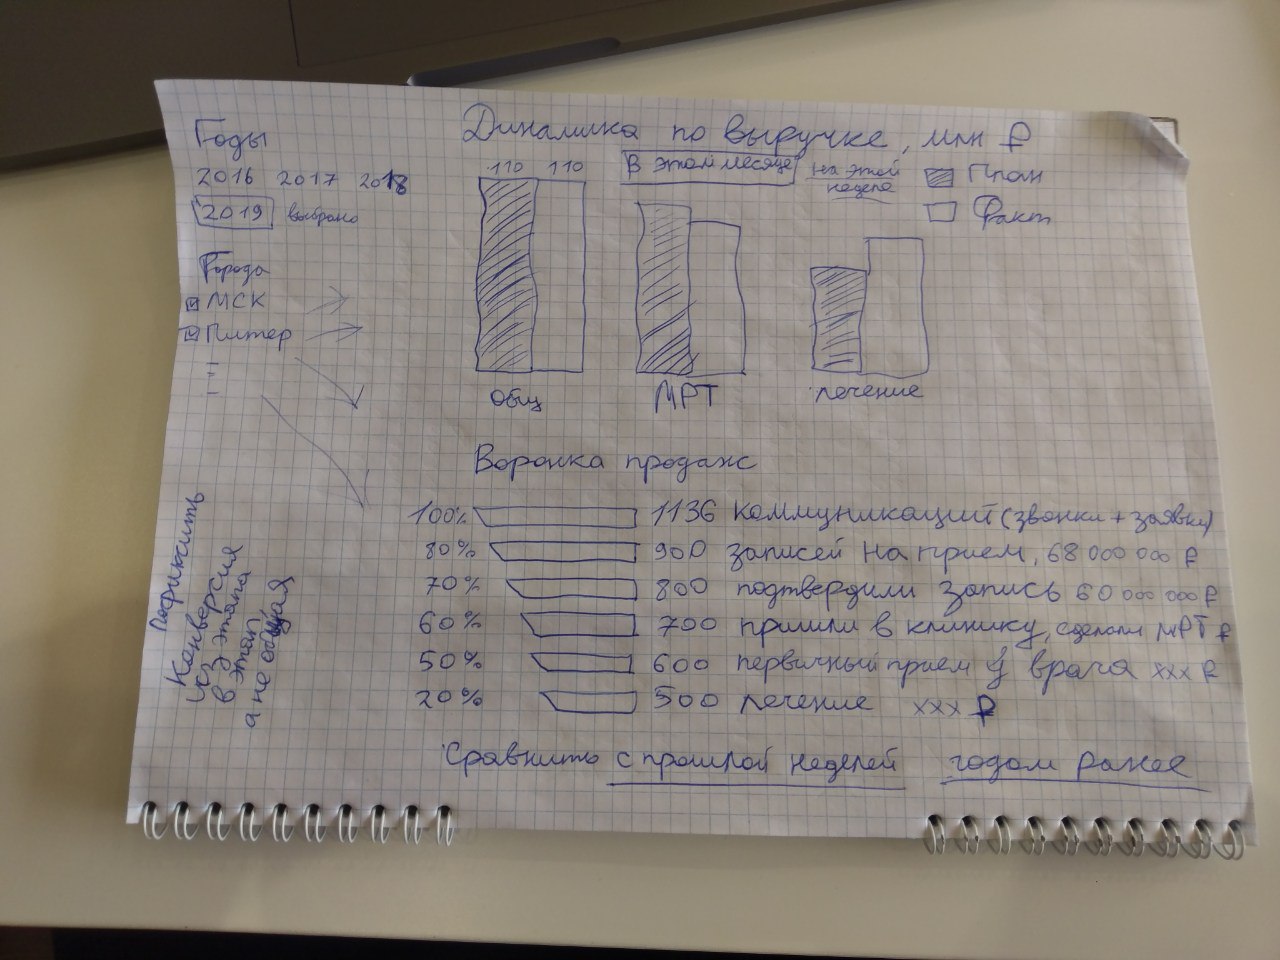 Годы
2016 2017 2018
2019 выбрано
Города
МСК
Питер
Динамика по выручке, млн ₽
В этом месяце на этой неделе
План
Факт
110 110
общ МРТ лечение
Воронка продаж
100% 1136 коммуникаций (звонки + заявки)
80% 900 записей на прием, 68 000 000 ₽
70% 800 подтвердили запись 60 000 000 ₽
60% 700 пришли в клинику, сделали МРТ ₽
50% 600 первичный прием у врача xxx ₽
20% 500 лечение xxx ₽
Сравнить с прошлой неделей годом ранее
Пофиксить
Конверсия
из этапа
в этап,
а не общая